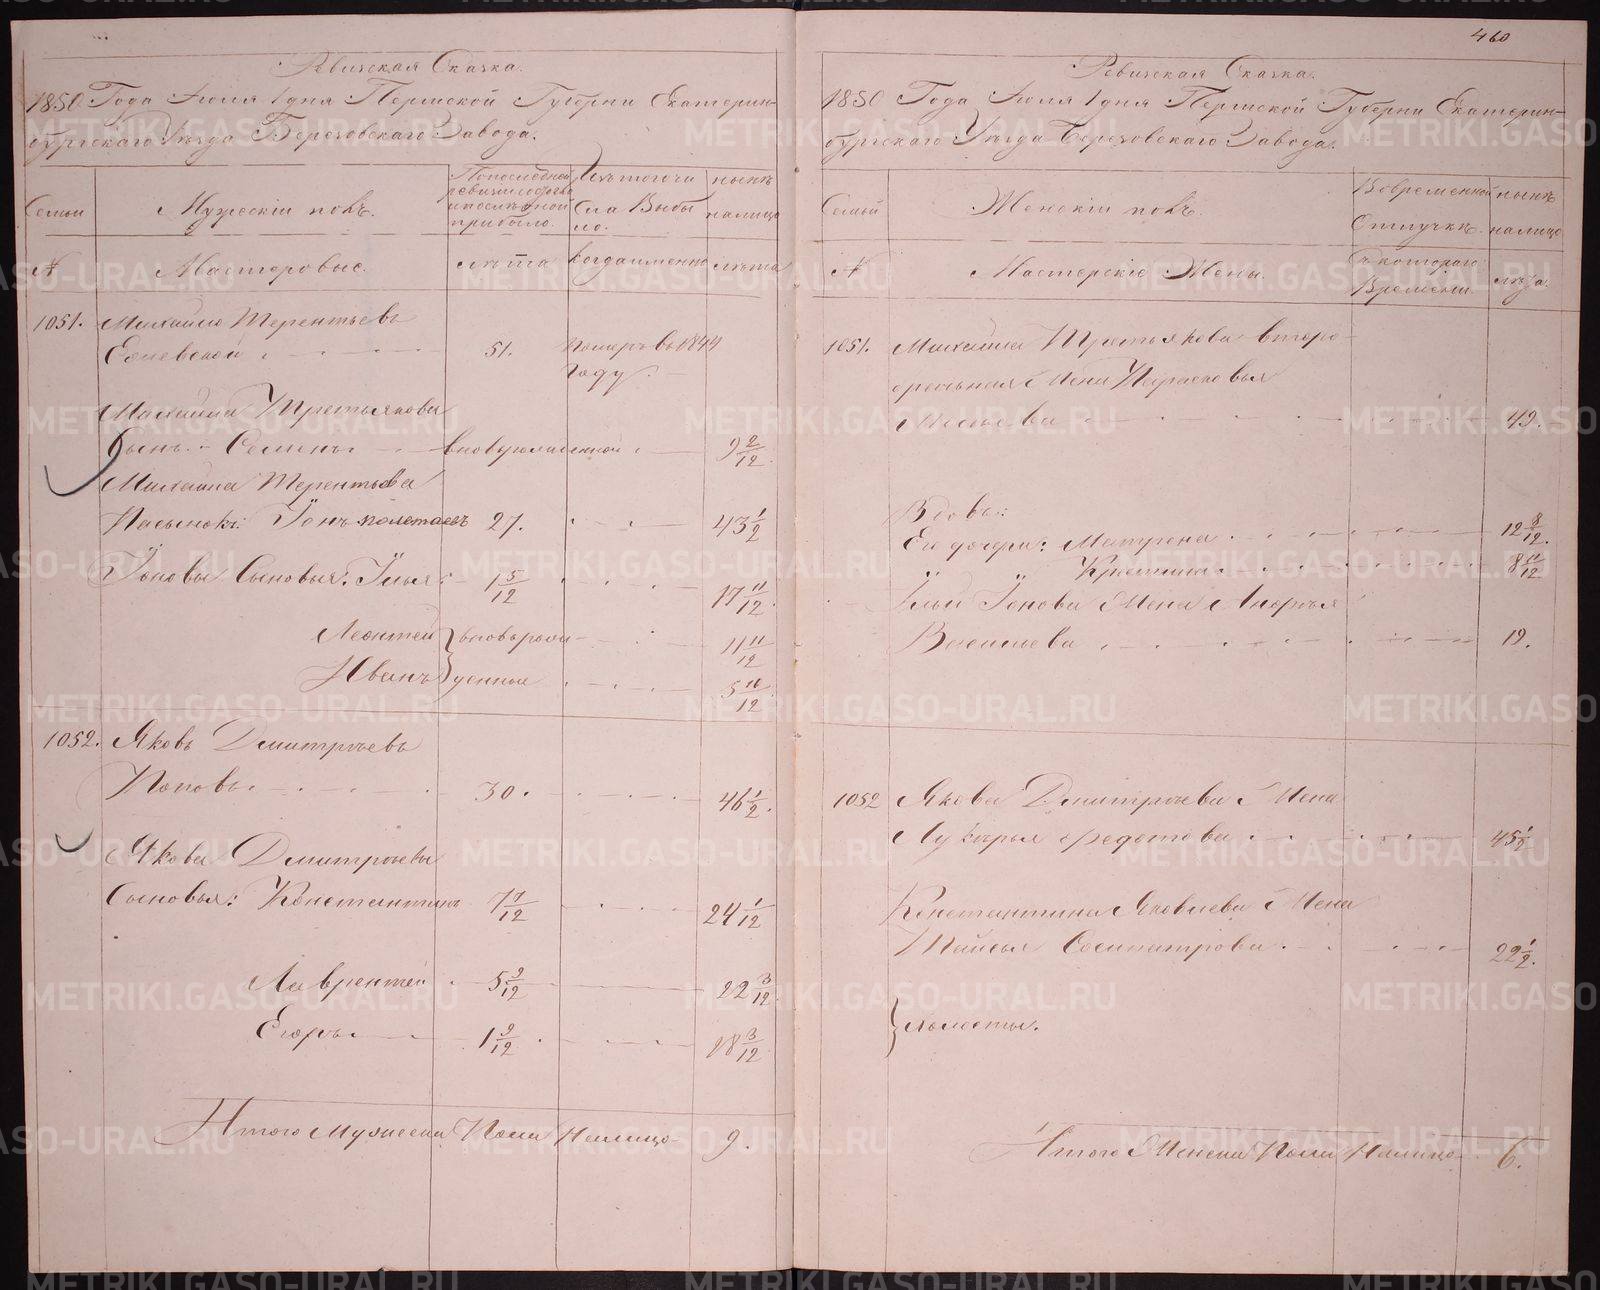 Ревизская Сказка.
1850 Года Июля 1 дня Пермской Губерни Екатерин-
бургскаго Уѣзда Березовскаго Завода.
Семьи
Мужескій полъ.
По последней
ревизіи
и после оной
прибыло.
Изъ того чи
сла Выбы
ло.
нынѣ
налицо
№
Мастеровые.
лѣта
когда именно
лѣта
1051. Михайло Терентьевъ
51. Померъ въ 1844
году.
Михайла Третьякова
Сынъ - вновьрожденной 9 2/12
Михайла Терентьева
Пасынокъ: Іонъ Полетаевъ 27. 43 1/2
Іоновы Сыновья: Илья 1 5/12 17 11/12
Леонтей } вновьрож- 11 11/12
Иванъ } денныя 5 11/12
1052. Яковъ Дмитріевъ
Поповъ 30. 46 1/2.
Якова Дмитріевы
Сыновья: Константинъ 7 7/12 24 1/12
Лаврентей 5 9/12 22 3/12
Егоръ 1 9/12 18 3/12
Итого Мужеска Пола Налицо 9.
460
Ревизская Сказка.
1850 Года Июля 1 дня Пермской Губерни Екатерин-
бургскаго Уѣзда Березовскаго Завода.
Семьи
Женскій полъ.
Во временной
Отлучкѣ.
нынѣ
налицо
№
Мастерскіе Жены.
Съ котораго
Времени.
лѣта.
1051. Михайла Третьякова второ-
брачная Жена Парасковья
49.
Вдовы:
Ее дочери: Матрена 12 8/12.
Кристина 8 11/12
Ильи Іонова Жена
Васильева 19.
1052 Якова Дмитріева Жена
Лукерья Федотова 45 1/2
Константина Яковлева Жена
Таисья Сосипатрова 22 1/2.
} холосты.
Итого Женска Пола Налицо 6.
METRIKI.GASO-URAL.RU